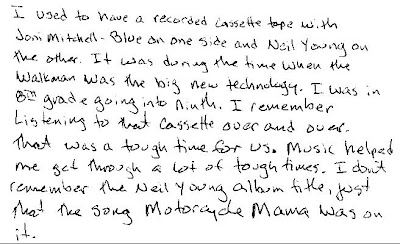 I used to have a recorded cassette tape with
Joni Mitchell - Blue on one side and Neil Young on
the other. It was during the time when the
Walkman was the big new technology. I was in
8th grade going into ninth. I remember
Listening to that cassette over and over.
That was a tough time for us. Music helped
me get through a lot of tough times. I don't
remember the Neil Young album title, just
that the song Motorcycle Mama was on
it.